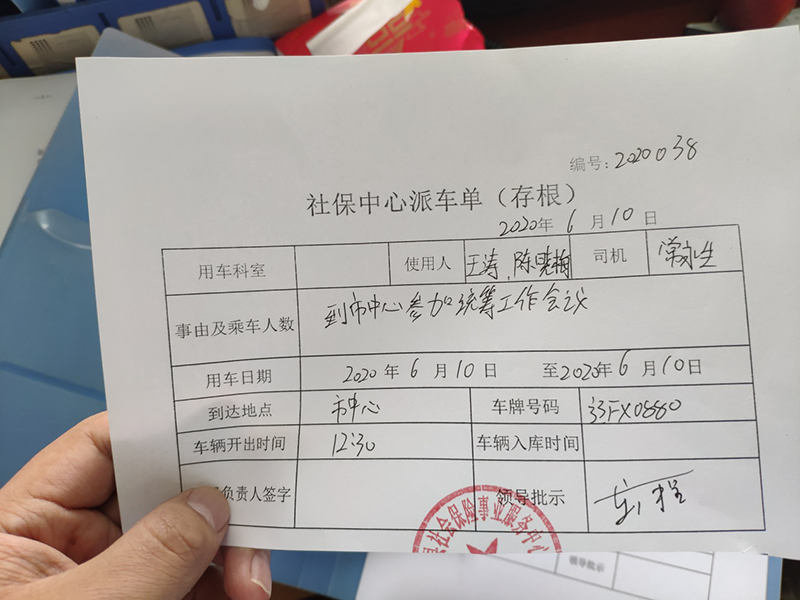 编号：2020038
社保中心派车单（存根）
2020年 6 月 10 日
用车科室 使用人 王涛、陈晓梅 司机 常永生
事由及乘车人数 到市中心参加统筹工作会议
用车日期 2020 年 6 月 10 日 至2020年 6 月 10日
到达地点 市中心 车牌号码
车辆开出时间 12:30 车辆入库时间
负责人签字 领导批示
社会保险事业服务中心
领导批示